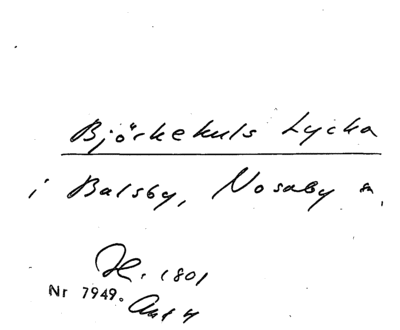 Björkekuls Lycka
i Balsby, Nosaby sn.
H. 1801
Nr 7949.